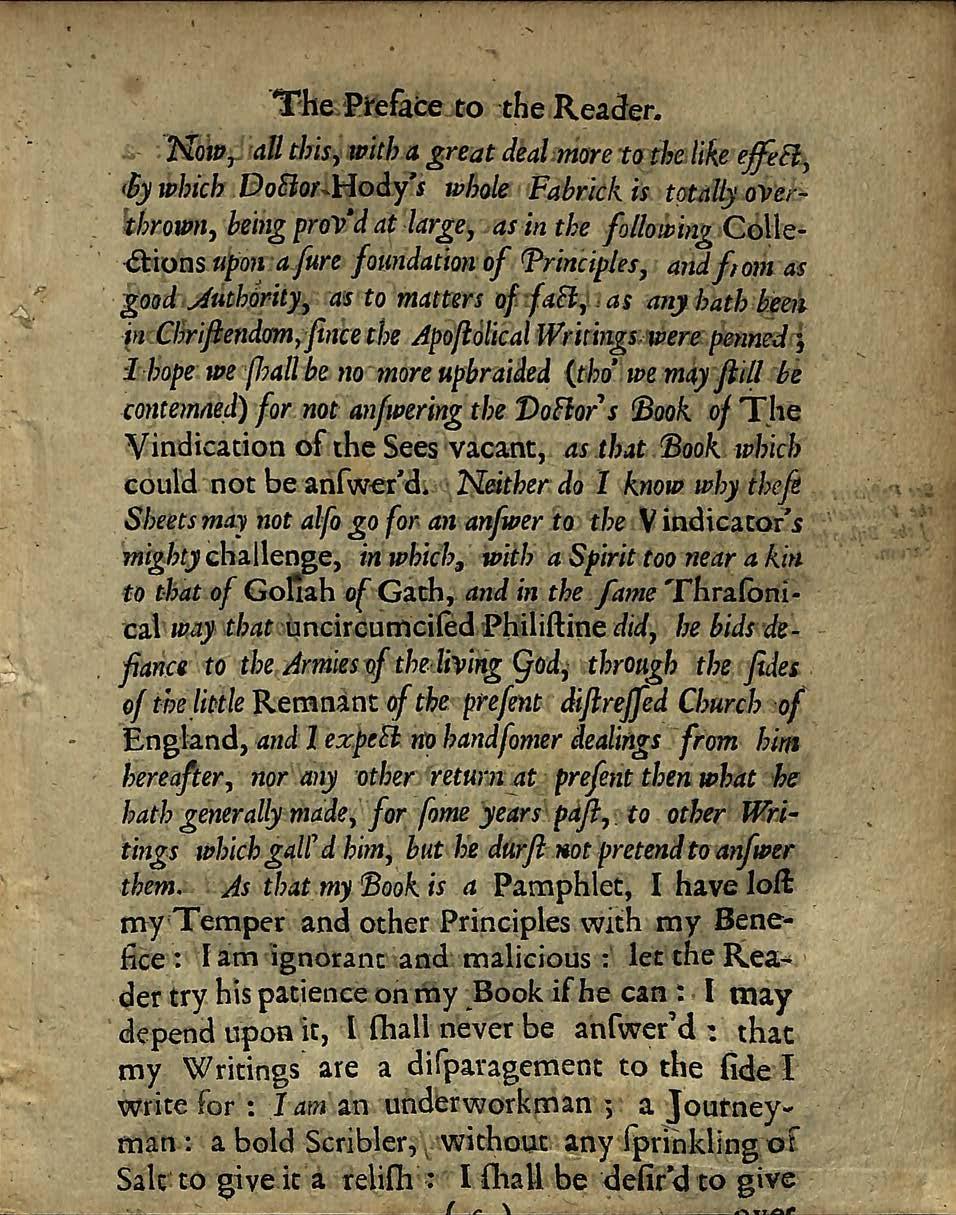 The Preface to the Reader.
Now, all this, with a great deal more to the like effect,
by which Doctor Hody's whole Fabrick is totally over-
thrown, being prov'd at large, as in the following Colle-
ctions upon a ſure foundation of Principles, and from as
good Authority, as to matters of fact, as any hath been
in Chriſtendom, ſince the Apoſtolical Writings were penned;
I hope we ſhall be no more upbraided (tho' we may ſtill be
contemned) for not anſwering the Doctor's Book of The
Vindication of the Sees vacant, as that Book which
could not be anſwer'd. Neither do I know why theſe
Sheets may not alſo go for an anſwer to the Vindicator's
mighty challenge, in which, with a Spirit too near a kin
to that of Goliah of Gath, and in the ſame Thraſoni-
cal way that uncircumciſed Philiſtine did, he bids de-
fiance to the Armies of the living God, through the ſides
of the little Remnant of the preſent diſtreſſed Church of
England, and I expect no handſomer dealings from him
hereafter, nor any other return at preſent then what he
hath generally made, for ſome years paſt, to other Wri-
tings which gall'd him, but he durſt not pretend to anſwer
them. As that my Book is a Pamphlet, I have loſt
my Temper and other Principles with my Bene-
fice: I am ignorant and malicious: let the Rea-
der try his patience on my Book if he can: I may
depend upon it, I ſhall never be anſwer'd: that
my Writings are a diſparagement to the ſide I
write for: I am an underworkman; a Journey-
man: a bold Scribler, without any ſprinkling of
Salt to give it a reliſh: I ſhall be deſir'd to give
over